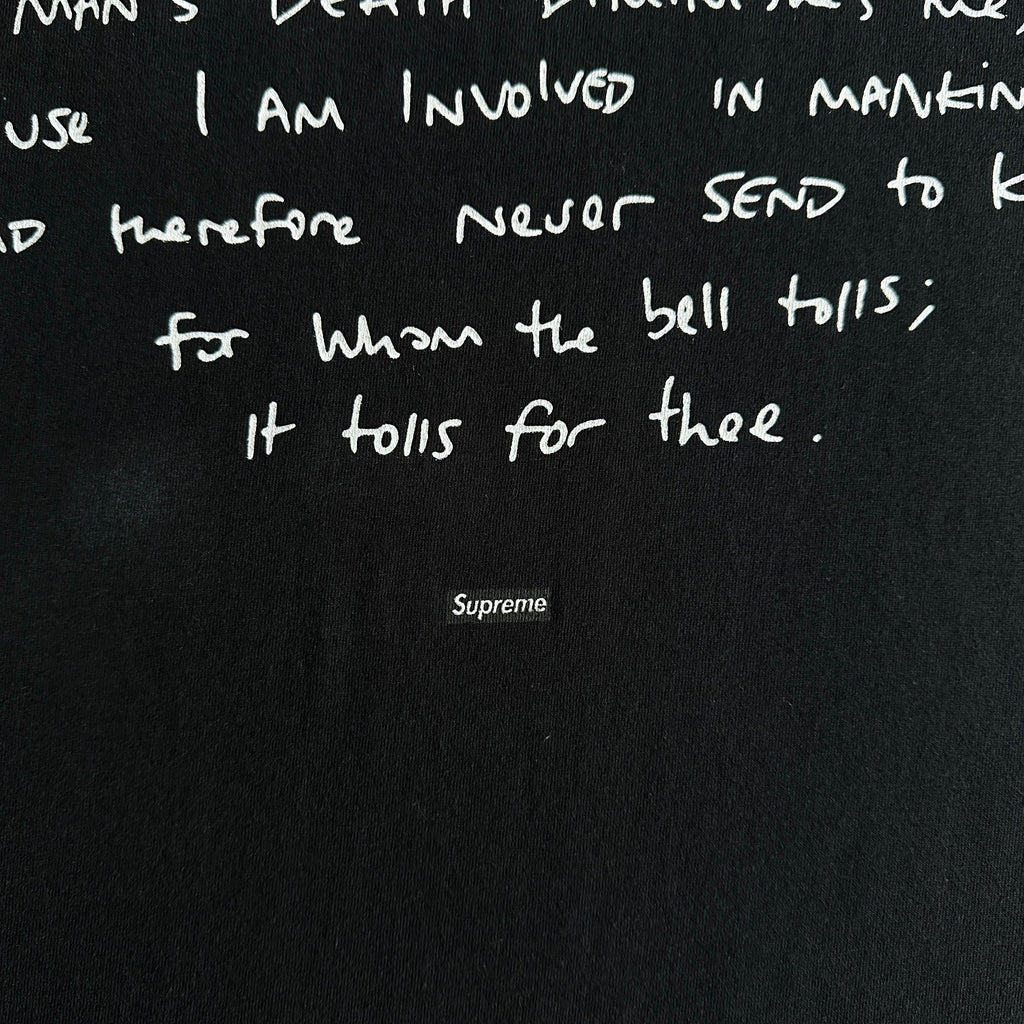 MAN'S DEATH DIMINISHES ME,
USE I AM INVOLVED IN MANKIN
ND therefore Never SEND to K
for Whom the bell tolls;
It tolls for thee.
Supreme